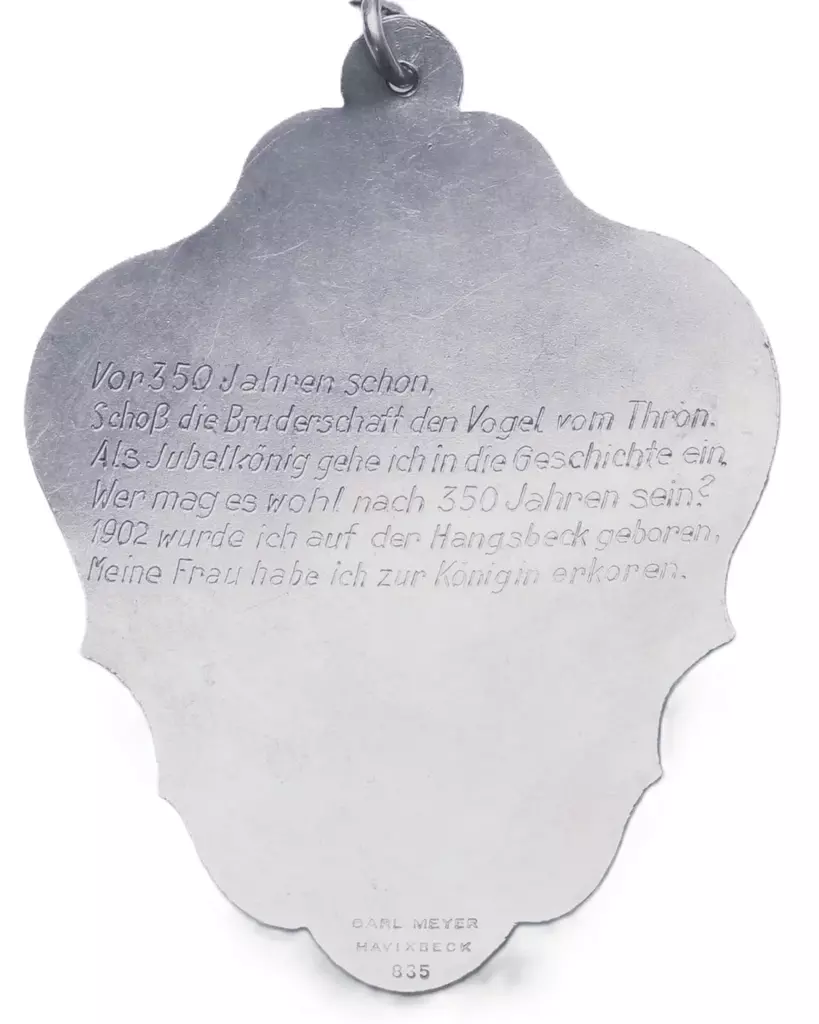 Vor 350 Jahren schon,
Schoß die Bruderschaft den Vogel vom Thron.
Als Jubelkönig gehe ich in die Geschichte ein,
Wer mag es wohl nach 350 Jahren sein?
1902 wurde ich auf der Hangsbeck geboren,
Meine Frau habe ich zur Königin erkoren.
CARL MEYER
HAVIXBECK
835